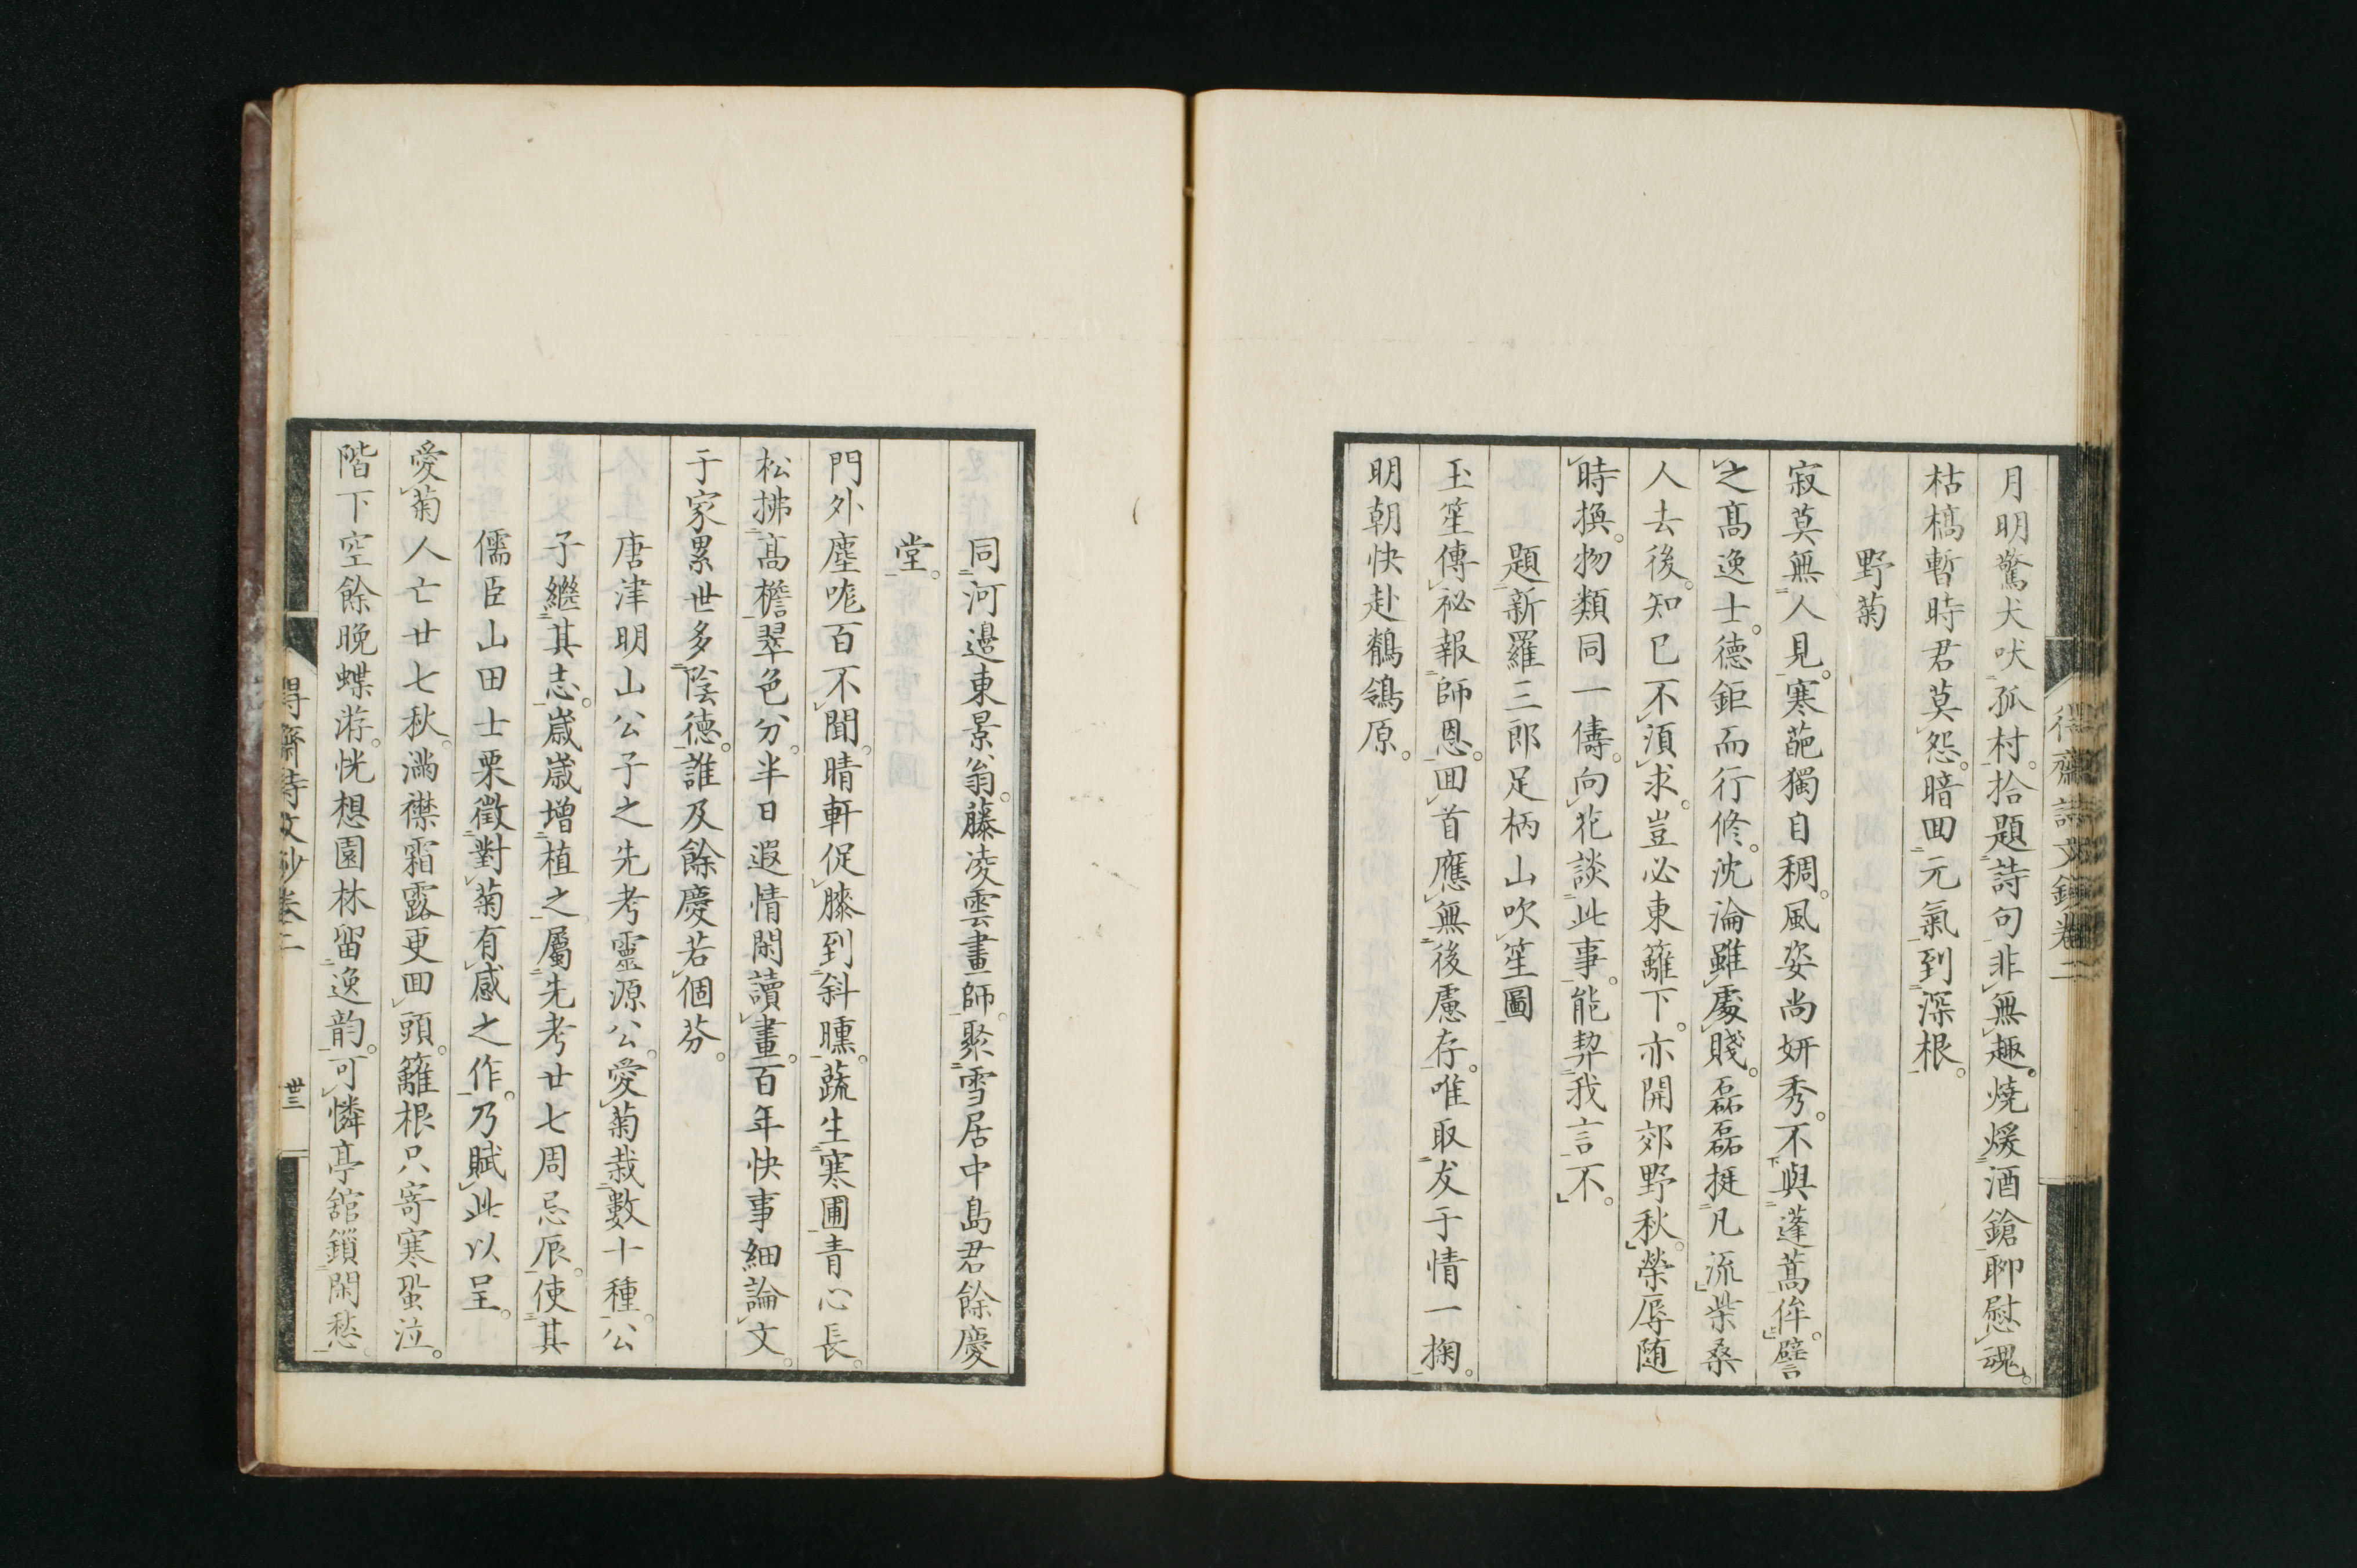 月明驚犬吠孤村。拾題詩句非無趣。燒煖酒鎗聊慰魂。
枯槁暫時君莫怨。暗囬元氣到深根。
野菊
寂莫無人見。寒葩獨自稠。風姿尚妍秀。不與蓬蒿侔。譬
之高逸士。德鉅而行修。沈淪雖處賤。磊磊挺凡流。柴桑
人去後。知已不須求。豈必東籬下。亦開郊野秋。榮辱随
時換。物類同一儔。向花談此事。能契我言不。
題新羅三郎足柄山吹笙圖
玉笙傳祕報師恩。囬首應無後慮存。唯取友于情一掬。
明朝快赴鶺鴒原。
同河邉東景翁。藤凌雲畫師。聚雪居中島君餘慶
堂。
門外塵咙百不聞。晴軒促膝到斜曛。蔬生寒圃青心長。
松拂高檐翠色分。半日遐情閑讀畫。百年快事細論文。
于家累世多陰德。誰及餘慶若個芬。
唐津明山公子之先考靈源公。愛菊栽數十種。公
子繼其志。歲歲增植之。屬先考廿七周忌辰。使其
儒臣山田士栗徵對菊有感之作。乃賦此以呈。
愛菊人亡廿七秋。滿襟霜露更囬頭。籬根只寄寒蛩泣。
階下空餘晚蝶游。恍想園林留逸韵。可憐亭舘鎖閑愁。
得齋詩文鈔卷二
卅三